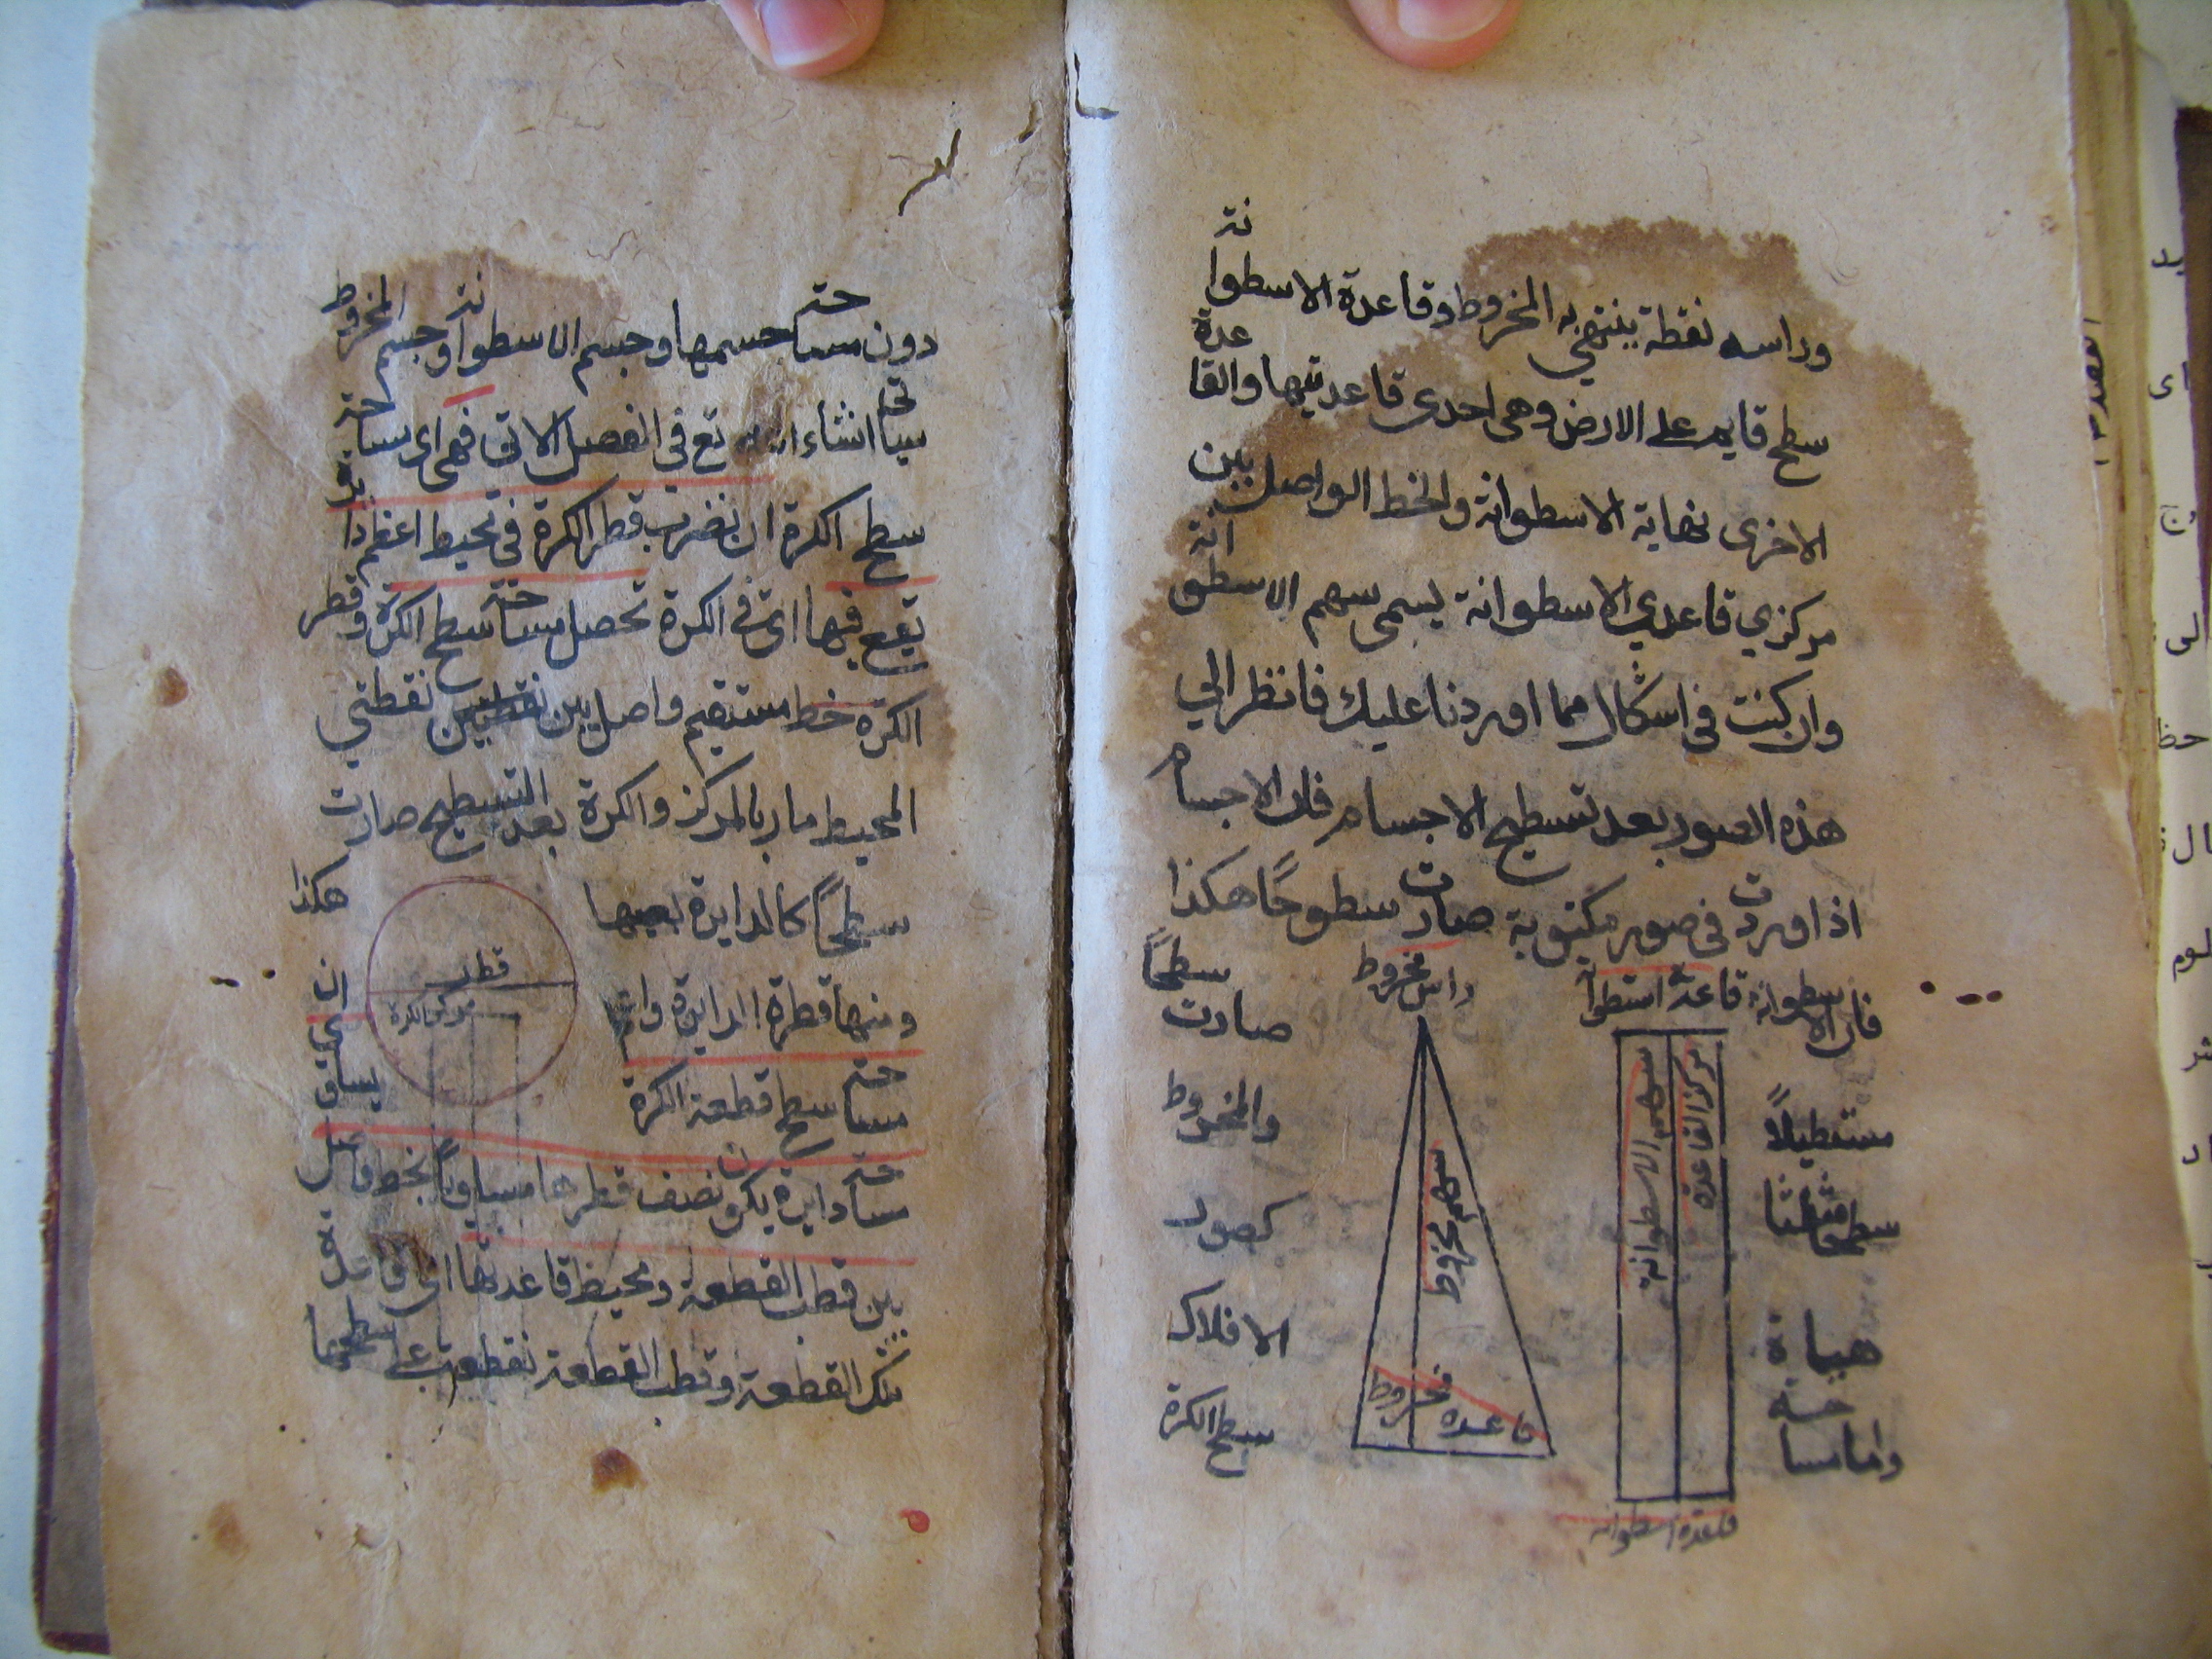 وراسه نقطة ينتهي به المخروط وقاعدة الاسطوانة
سطح قايم على الارض وهى احدى قاعدتيها والقاعدة
الاخرى نهاية الاسطوانة والخط الواصل بين
مركزي قاعدي الاسطوانة يسمى سهم الاسطوانة
وان كنت فى اشكال مما اوردنا عليك فانظر الي
هذه الصور بعد تسطيح الاجسام فان الاجسام
اذا اوردت فى صور مكتوبة صارت سطوحًا هكذا
فان الاسطوانة
قاعدة استطوانة
راس مخروط
سطحًا
صارت
مستطيلاً
والمخروط
سطحا مثلثا
كصور
الافلاك
واما مساحته
سطح الكرة
مركز القاعدة
سهم الاسطوانة
سهم مخروط
قاعده مخروط
قاعدة اسطوانه
دون مساحته جسمها وجسم الاسطوانة وجسم المخروط
انشاء الله تع في الفصل الاتى فهى اى مساحته
سطح الكرة ان نضرب قطر الكرة فى محيط اعظم دايرة
تقع فيها اى فى الكرة تحصل مساحته سطح الكرة وقطر
الكره خط مستقيم واصل بين نقطتين نقطتي
المحيط مار بالمركز والكرة بعد التسطيح صارت
سطحًا كالدايرة بعينها
هكذا
قطر
مركز الكرة
ومنها قطرة الدايرة
مساحته سطح قطعة الكرة
يساوى
مساحته دايرة يكون نصف قطرها مساويًا بخط واصل
بين قطب القطعة ومحيط قاعدتها اى قاعدة
تلك القطعة وقطب القطعة نقطعة على سطحها